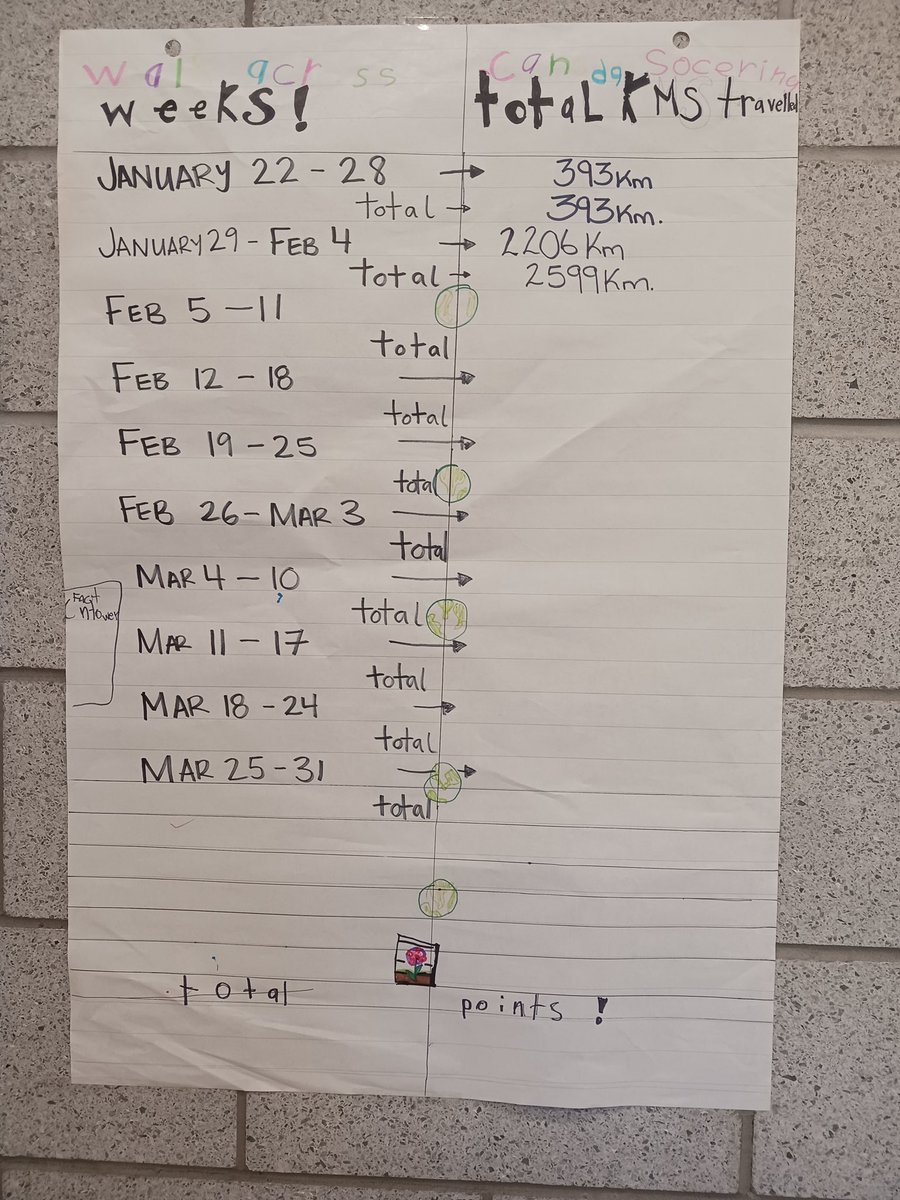 Wal acr ss Can da Socering
weeks! total KMS travelled
JANUARY 22 - 28 → 393Km
total → 393Km.
JANUARY 29 - FEB 4 → 2206 Km
total → 2599Km.
FEB 5 - 11
total
FEB 12 - 18 →
total
FEB 19 - 25 →
total
FEB 26 - MAR 3 →
total
MAR 4 - 10 →
Fact
total
MAR 11 - 17 →
total
MAR 18 - 24 →
total
MAR 25 - 31 →
total
total points !